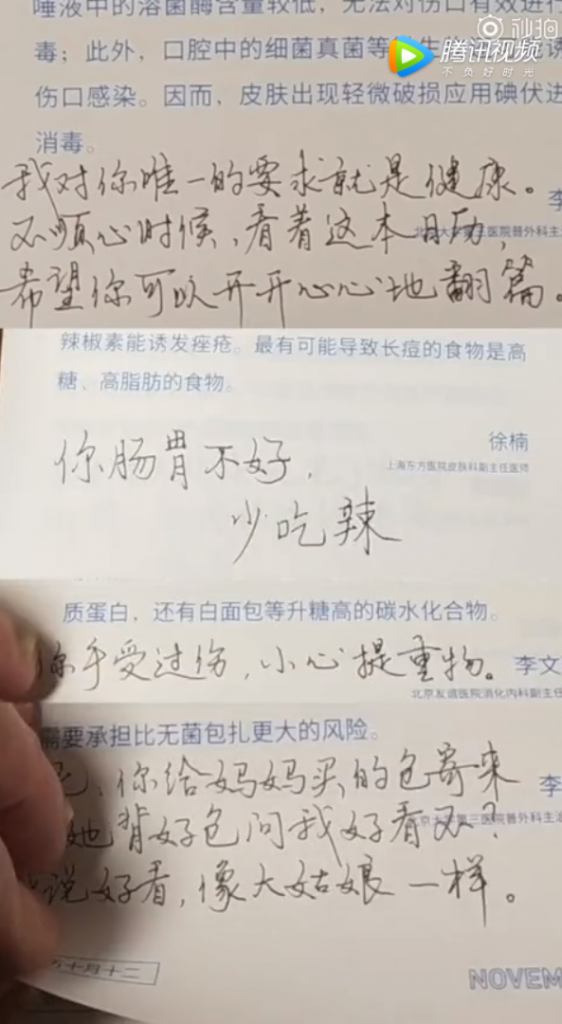 唾液中的溶菌酶含量较低，无法对伤口有效进行
秒拍
毒；此外，口腔中的细菌真菌等
腾讯视频
不负好时光
伤口感染。因而，皮肤出现轻微破损应用碘伏进
消毒。
我对你唯一的要求就是健康。
李
不顺心时候，看着这本日历，
希望你可以开开心心地翻篇。
辣椒素能诱发痤疮。最有可能导致长痘的食物是高
糖、高脂肪的食物。
徐楠
上海东方医院皮肤科副主任医师
你肠胃不好，
少吃辣
质蛋白，还有白面包等升糖高的碳水化合物。
你手受过伤，小心提重物。
李文
北京友谊医院消化内科副主任
需要承担比无菌包扎更大的风险。
你给妈妈买的包寄来
李
她背好包问我好看不？
说好看，像大姑娘一样。
十月十二
NOVEM